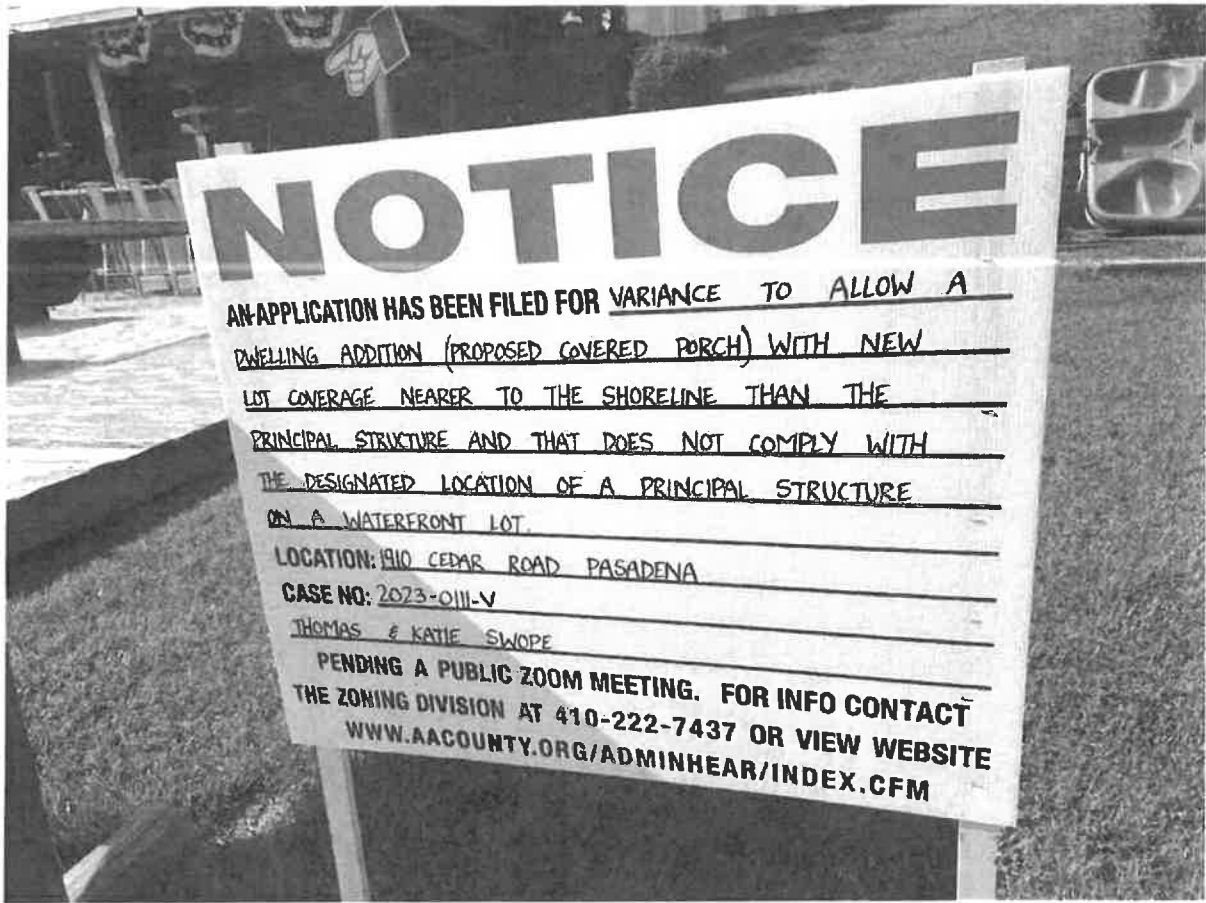 NOTICE
AN APPLICATION HAS BEEN FILED FOR VARIANCE TO ALLOW A
DWELLING ADDITION (PROPOSED COVERED PORCH) WITH NEW
LOT COVERAGE NEARER TO THE SHORELINE THAN THE
PRINCIPAL STRUCTURE AND THAT DOES NOT COMPLY WITH
THE DESIGNATED LOCATION OF A PRINCIPAL STRUCTURE
ON A WATERFRONT LOT.
LOCATION: 1910 CEDAR ROAD PASADENA
CASE NO: 2023-0111-V
THOMAS & KATIE SWOPE
PENDING A PUBLIC ZOOM MEETING. FOR INFO CONTACT
THE ZONING DIVISION AT 410-222-7437 OR VIEW WEBSITE
WWW.AACOUNTY.ORG/ADMINHEAR/INDEX.CFM